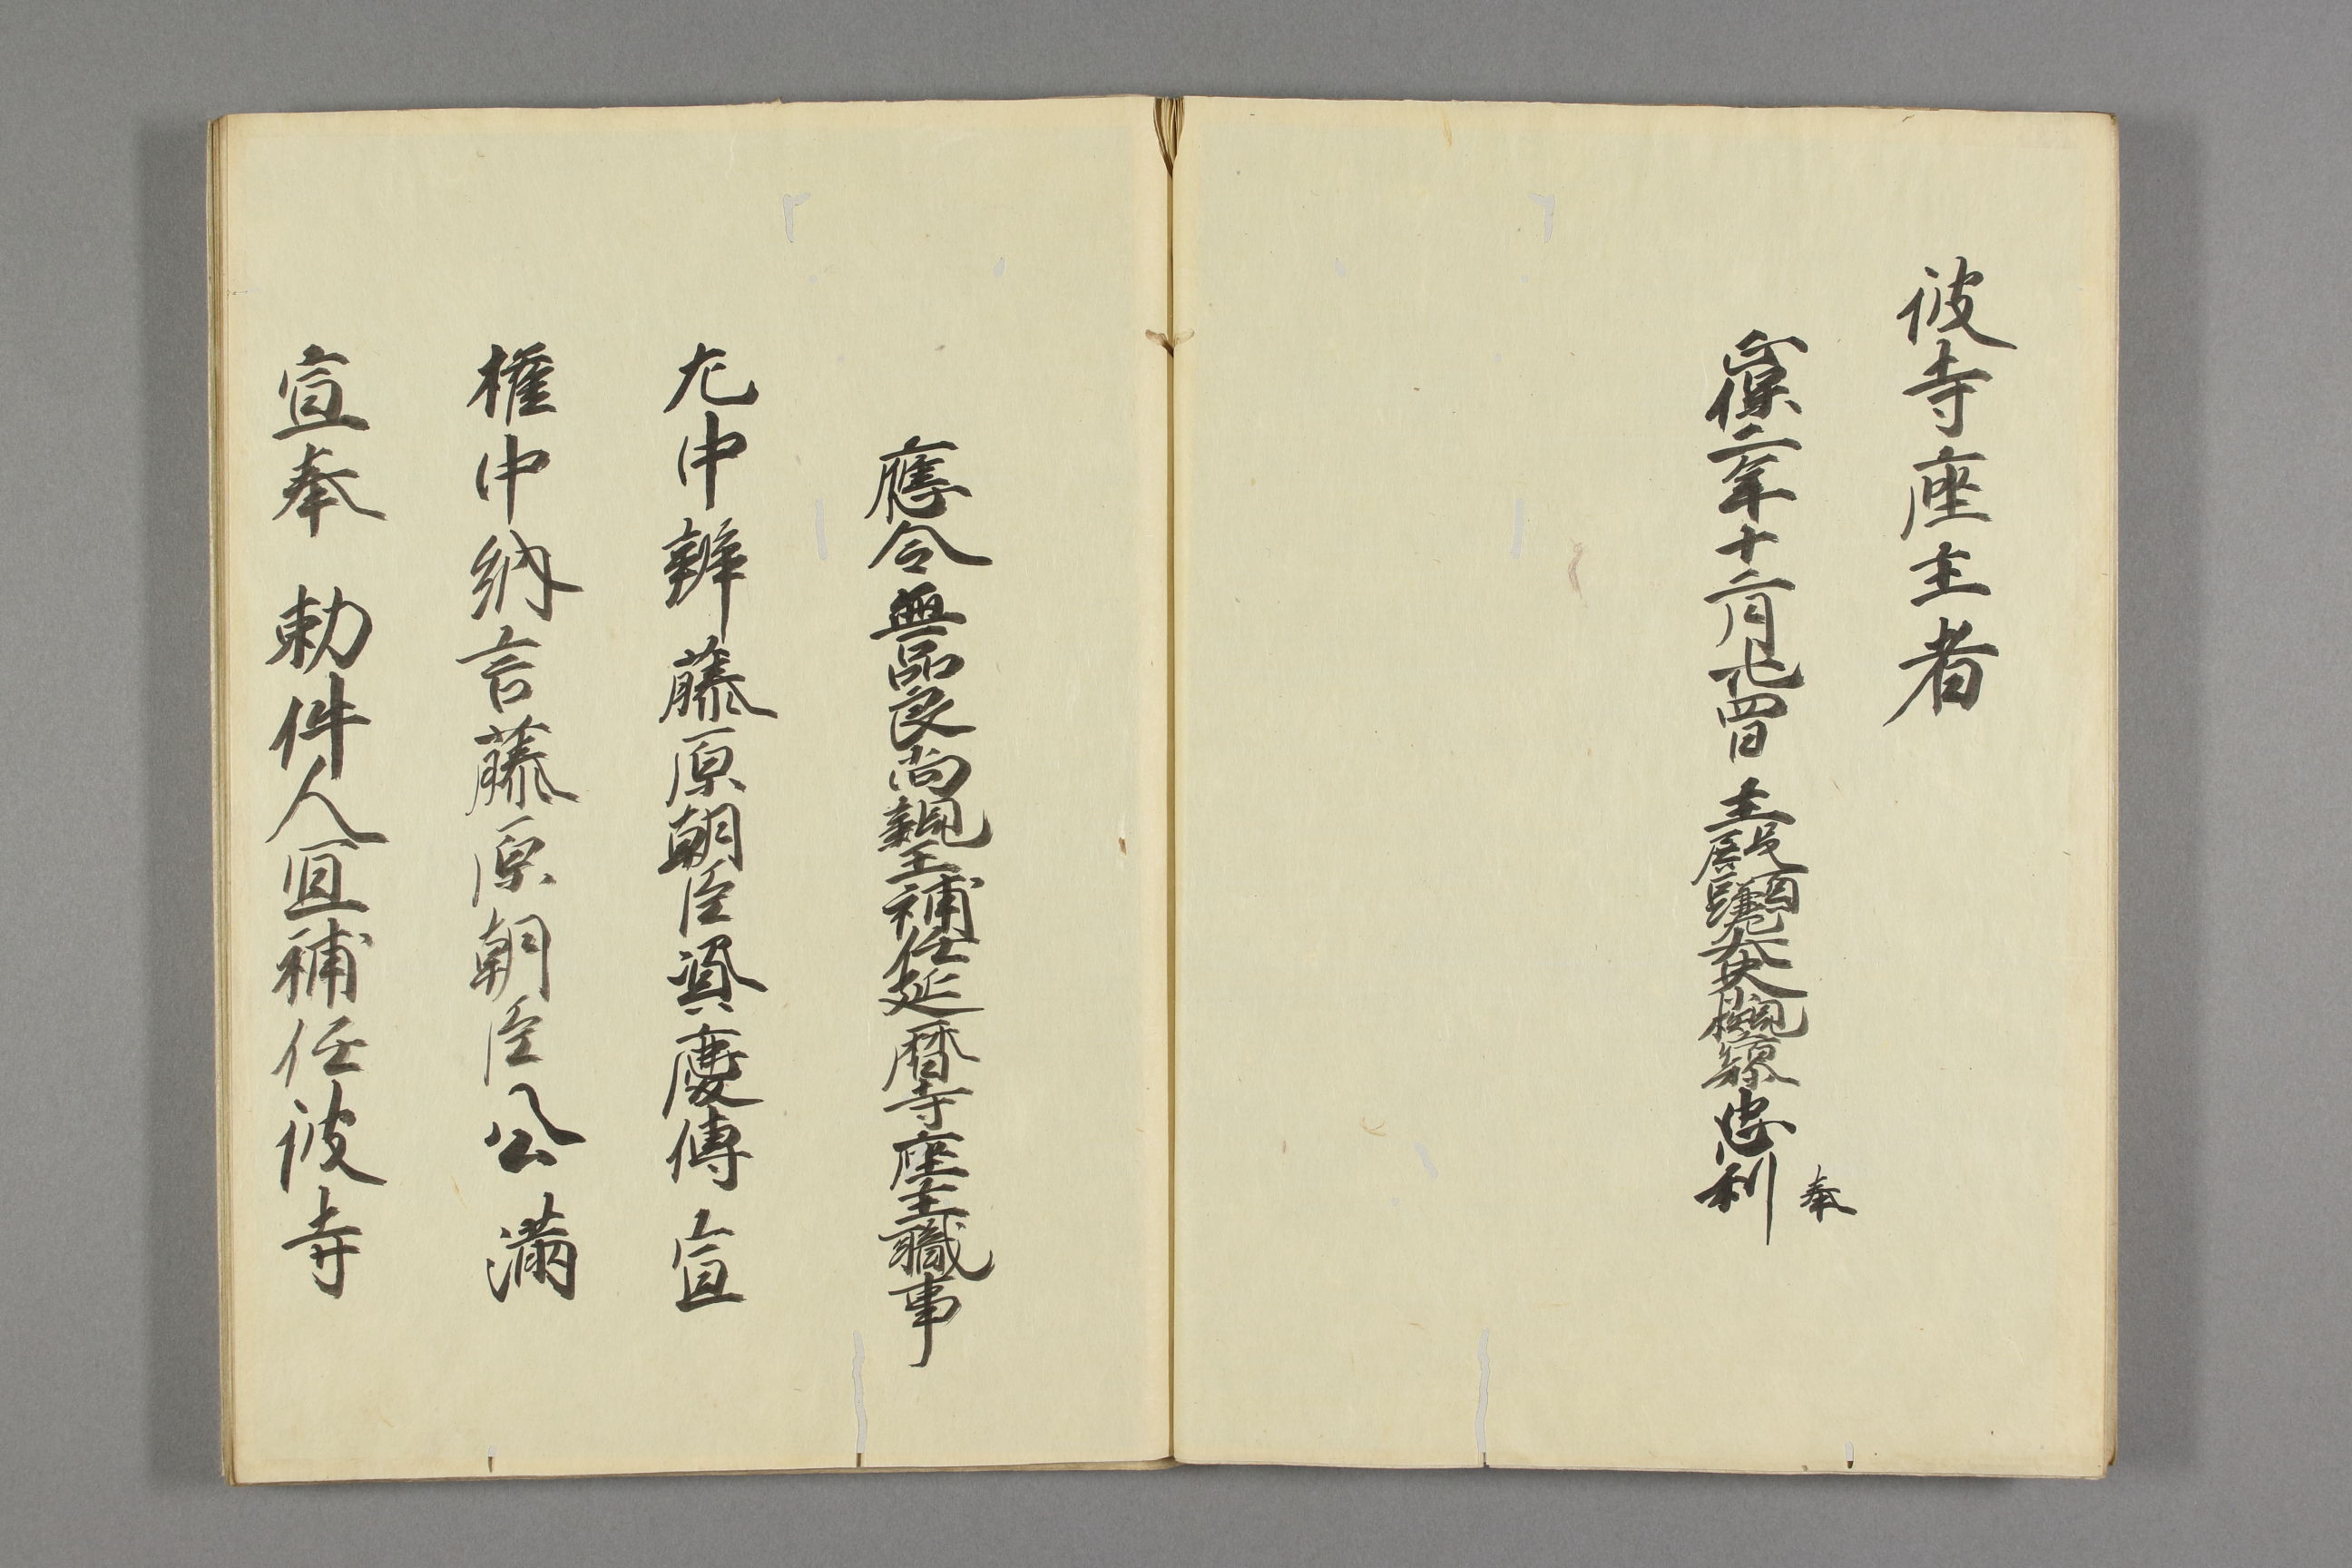 彼寺座主者
正保二年十二月廿四日 主殿頭兼左大史小槻宿祢忠利 奉
應令無品良尚親王補任延暦寺座主職事
左中辨藤原朝臣資慶傳 宣
權中納言藤原朝臣公満
宣奉 勅件人宜補任彼寺